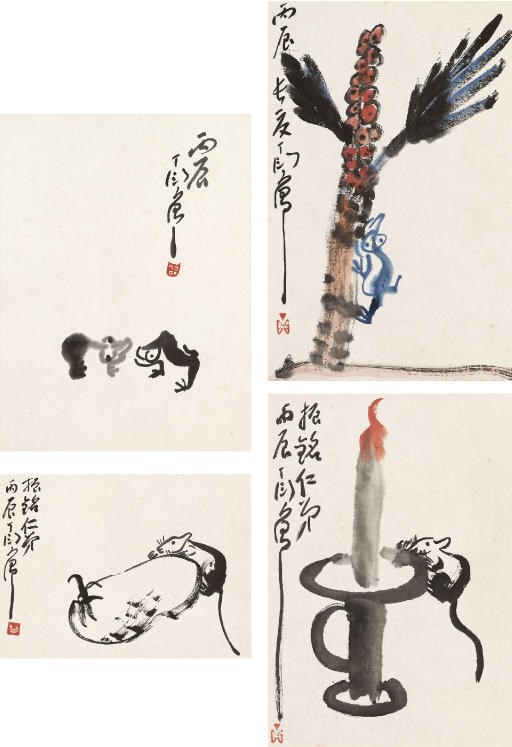 丙辰
丁衍庸
丙辰長夏丁衍庸
振銘仁弟
丙辰丁衍庸
振銘仁弟
丙辰丁衍庸